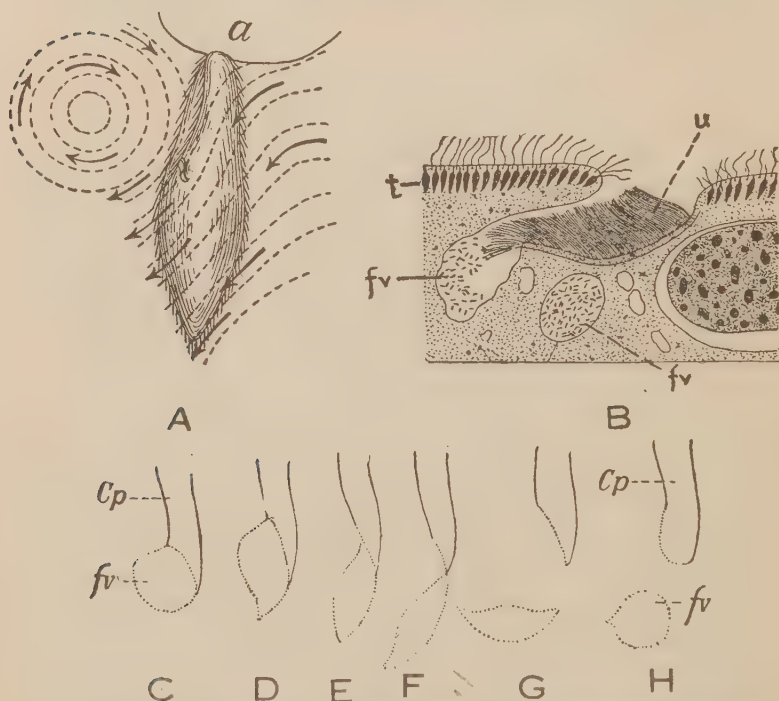 a
u
t
fv
fv
A
B
Cp
fv
Cp
fv
C D E F G H